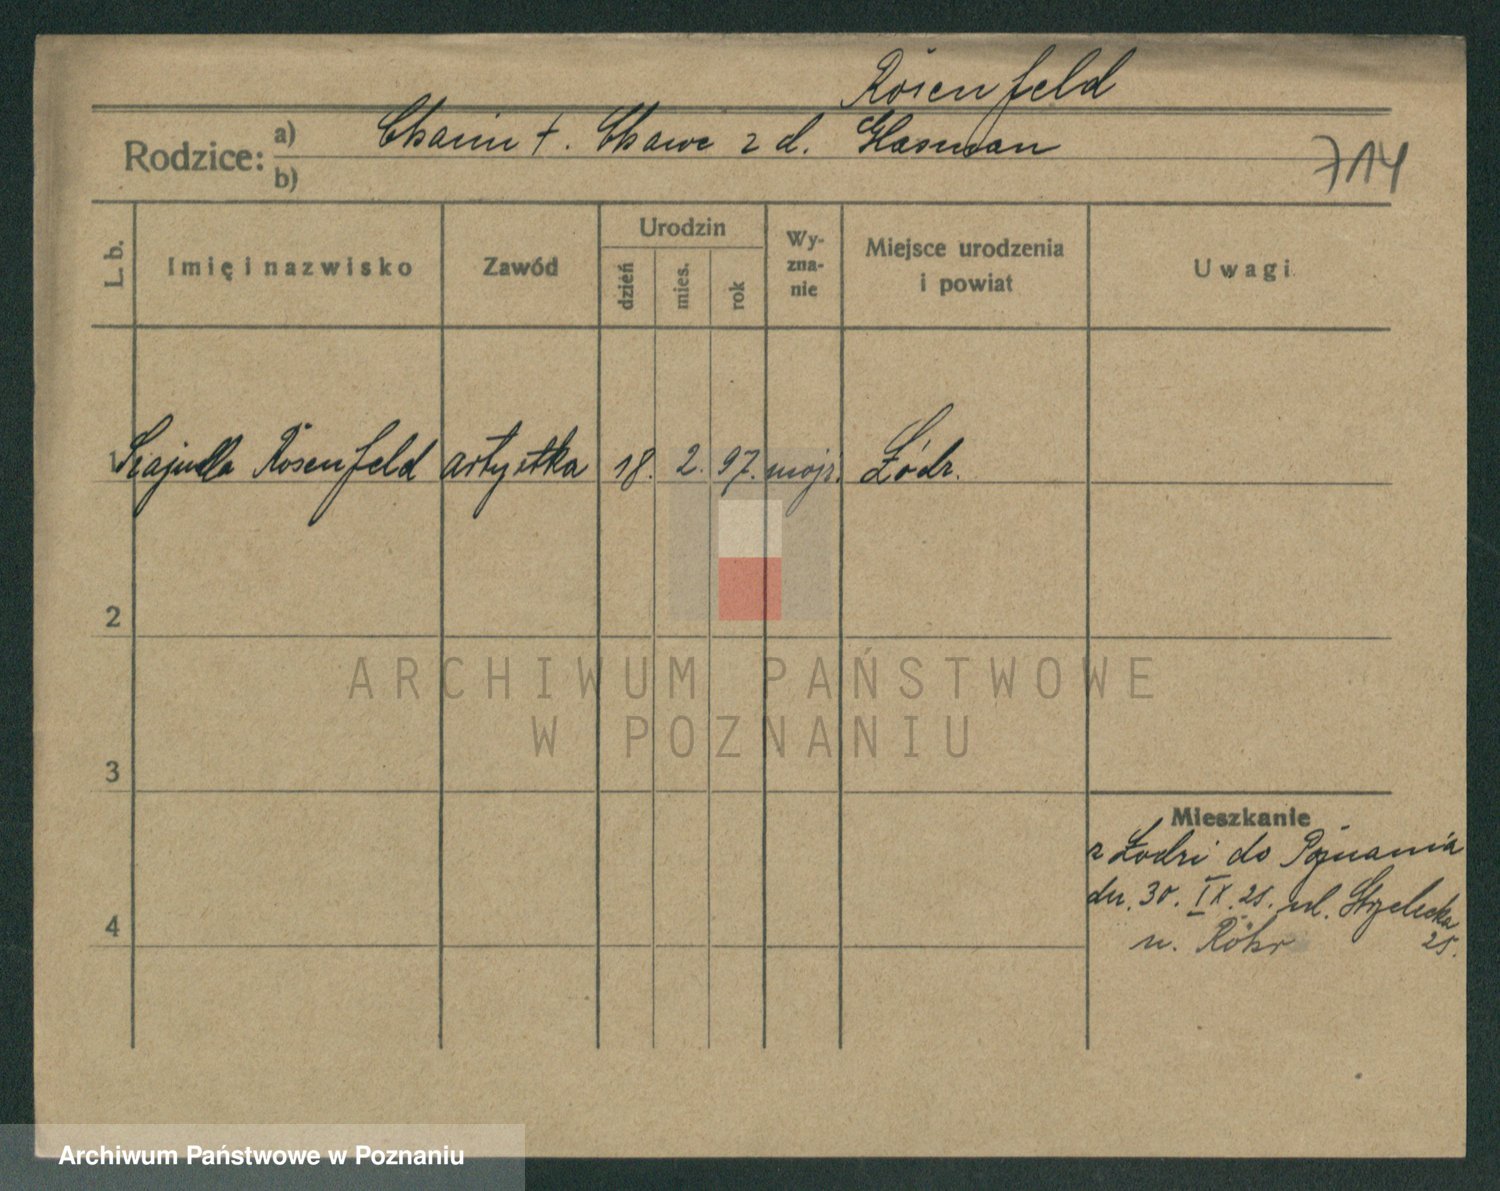 Rosenfeld
Rodzice: a) Chaim +. Chawe z d. Glasman
b)
714
L. b. Imię i nazwisko Zawód Urodzin dzień mies. rok Wy-zna-nie Miejsce urodzenia i powiat Uwagi
1 Szajndla Rosenfeld artystka 18. 2. 97. mojż. Łódź.
2
ARCHIWUM PAŃSTWOWE
W POZNANIU
3
Mieszkanie
z Łodzi do Poznania
dn. 30. IX. 25. ul. Strzelecka
u. Röhr 25.
4
Archiwum Państwowe w Poznaniu